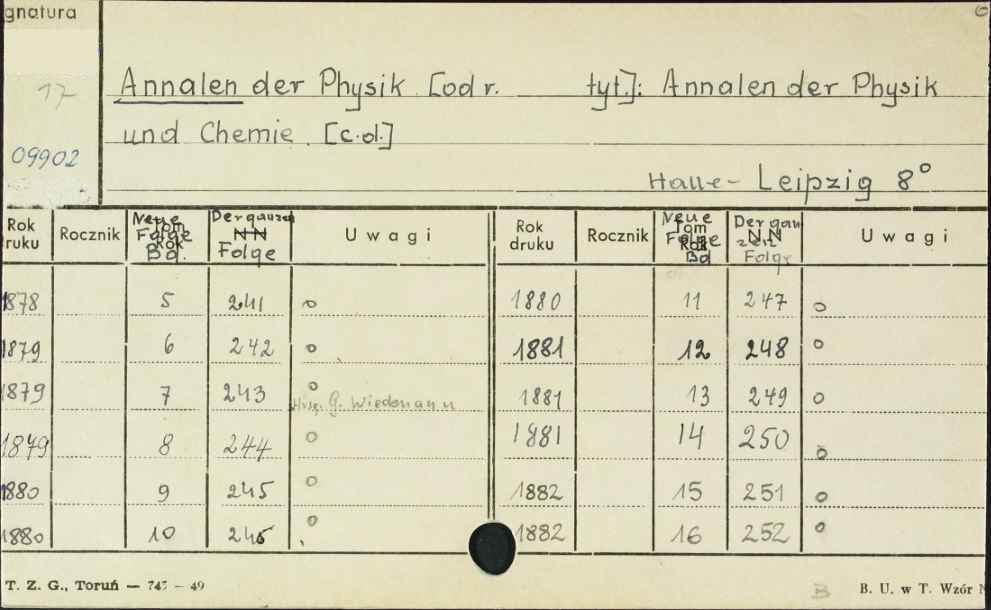 gnatura
17
09902
Annalen der Physik [odr. tyt.]: Annalen der Physik
und Chemie. [c.d.]
Halle - Leipzig 8°
Rok ruku Rocznik Neue Folge Bd. Der ganzen Folge Uwagi Rok druku Rocznik Neue Folge Bd Der gan zen Folge Uwagi
1878 5 241 o 1880 11 247 o
1879 6 242 o 1881 12 248 o
1879 7 243 o 1881 13 249 o
G. Wiedemann
1879 8 244 o 1881 14 250 o
1880 9 245 o 1882 15 251 o
1880 10 246 o 1882 16 252 o
T. Z. G., Toruń — 745 — 49
B
B. U. w T. Wzór N